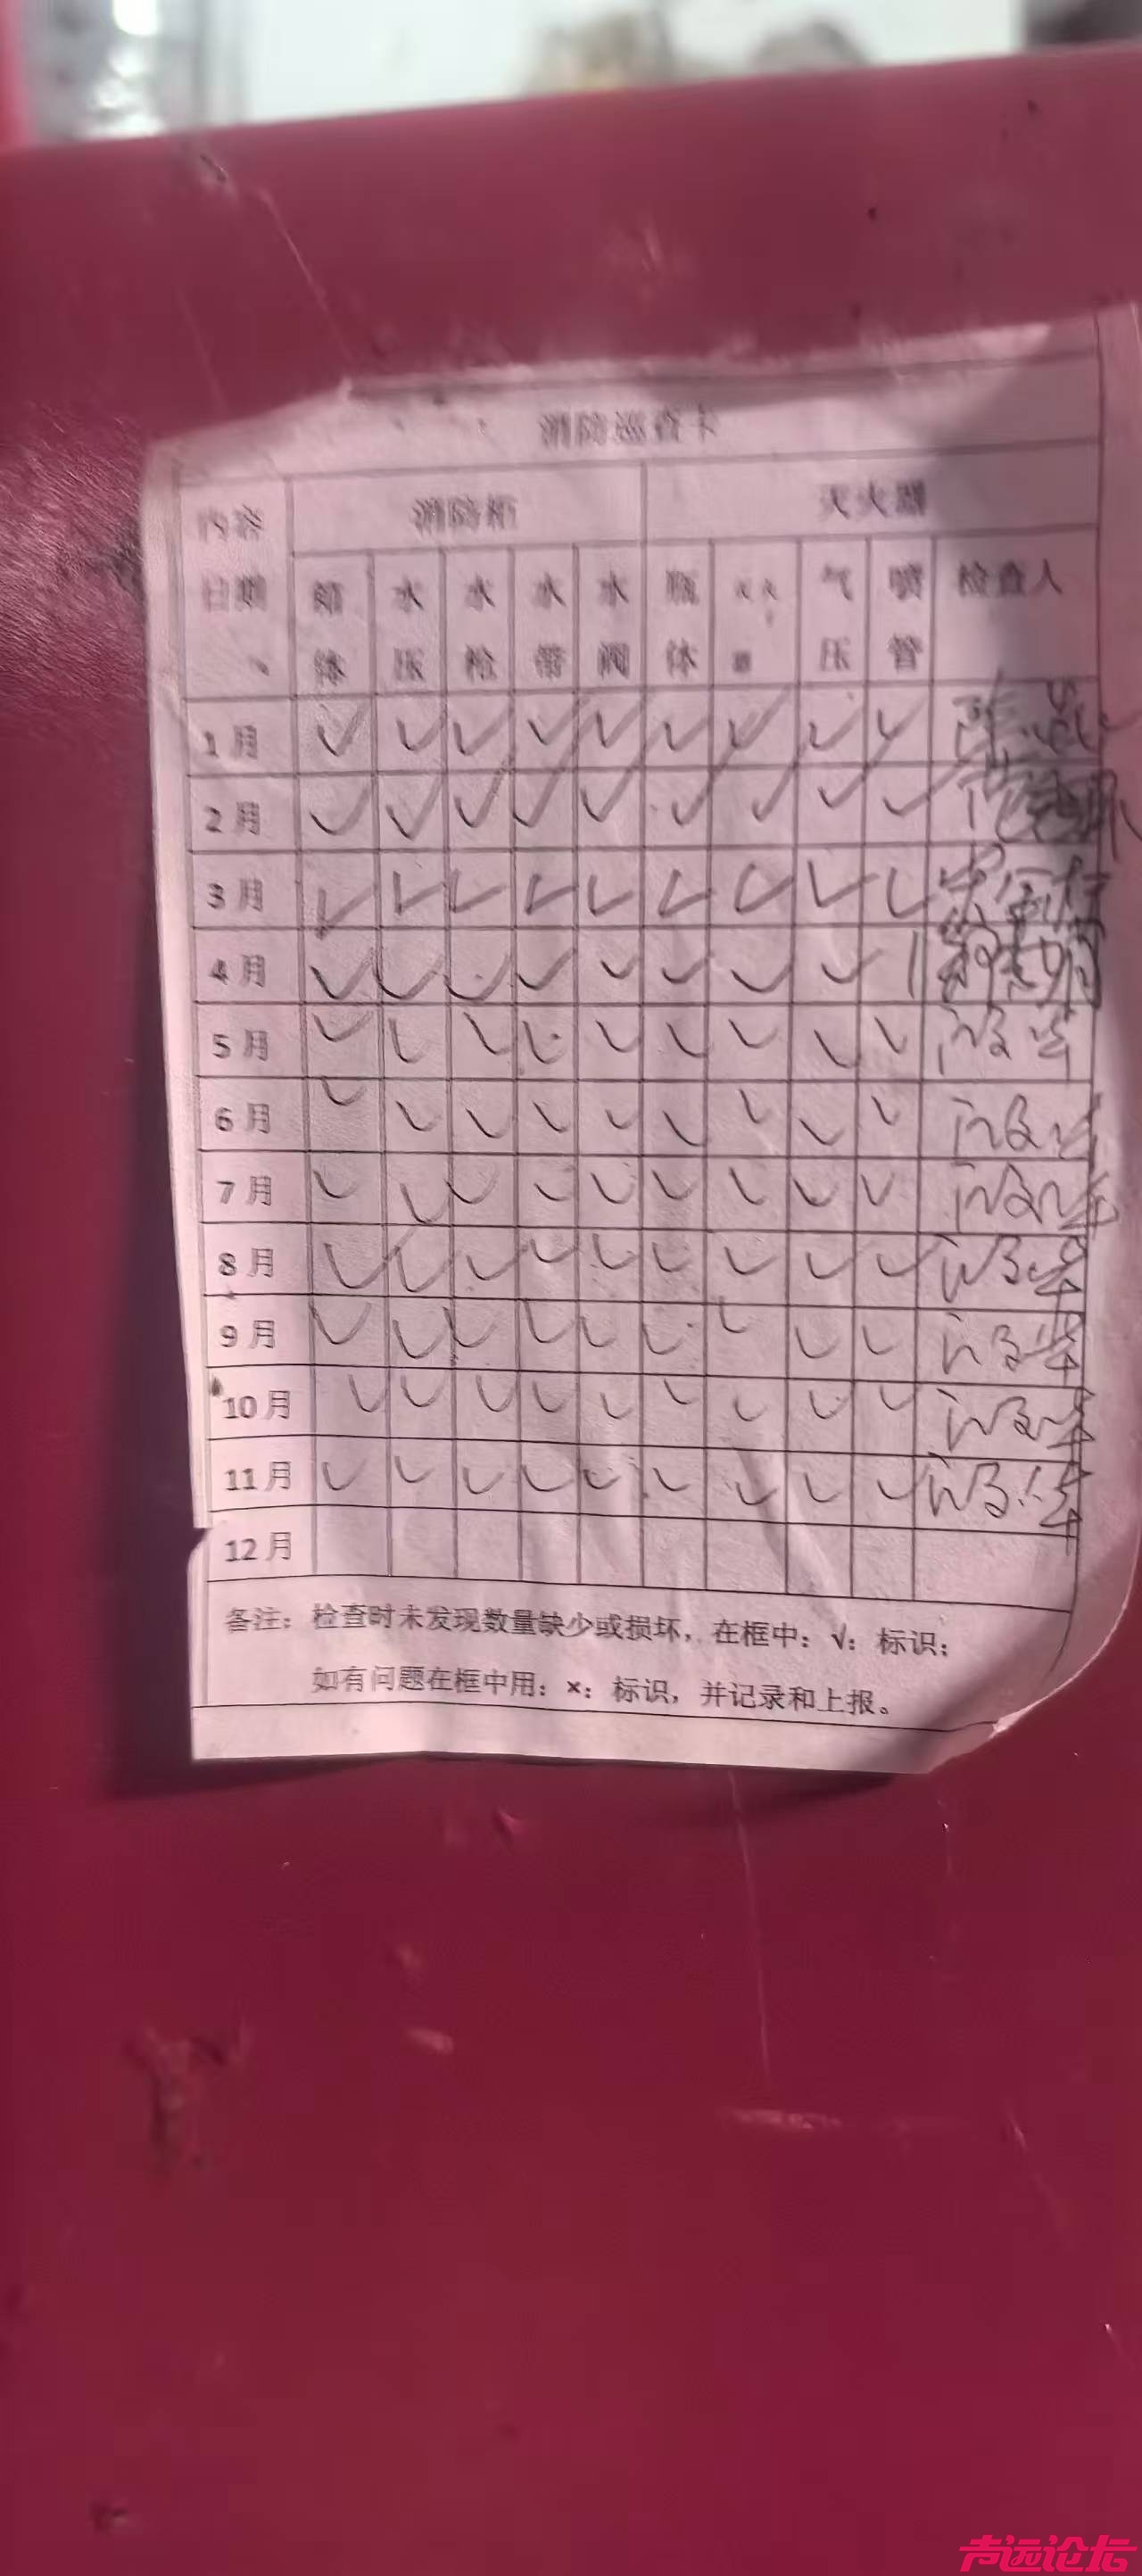 消防巡查卡
内容 消防柜 灭火器
日期 箱体 水压 水枪 水带 水阀 瓶体 气压 喷管 检查人
1月 √ √ √ √ √ √ √ √ √
2月 √ √ √ √ √ √ √ √ √
3月 √ √ √ √ √ √ √ √ √
4月 √ √ √ √ √ √ √ √
5月 √ √ √ √ √ √ √ √ √
6月 √ √ √ √ √ √ √ √ √
7月 √ √ √ √ √ √ √ √ √
8月 √ √ √ √ √ √ √ √ √
9月 √ √ √ √ √ √ √ √ √
10月 √ √ √ √ √ √ √ √ √
11月 √ √ √ √ √ √ √ √ √
12月
备注：检查时未发现数量缺少或损坏，在框中：√：标识；
如有问题在框中用：×：标识，并记录和上报。
声远论坛